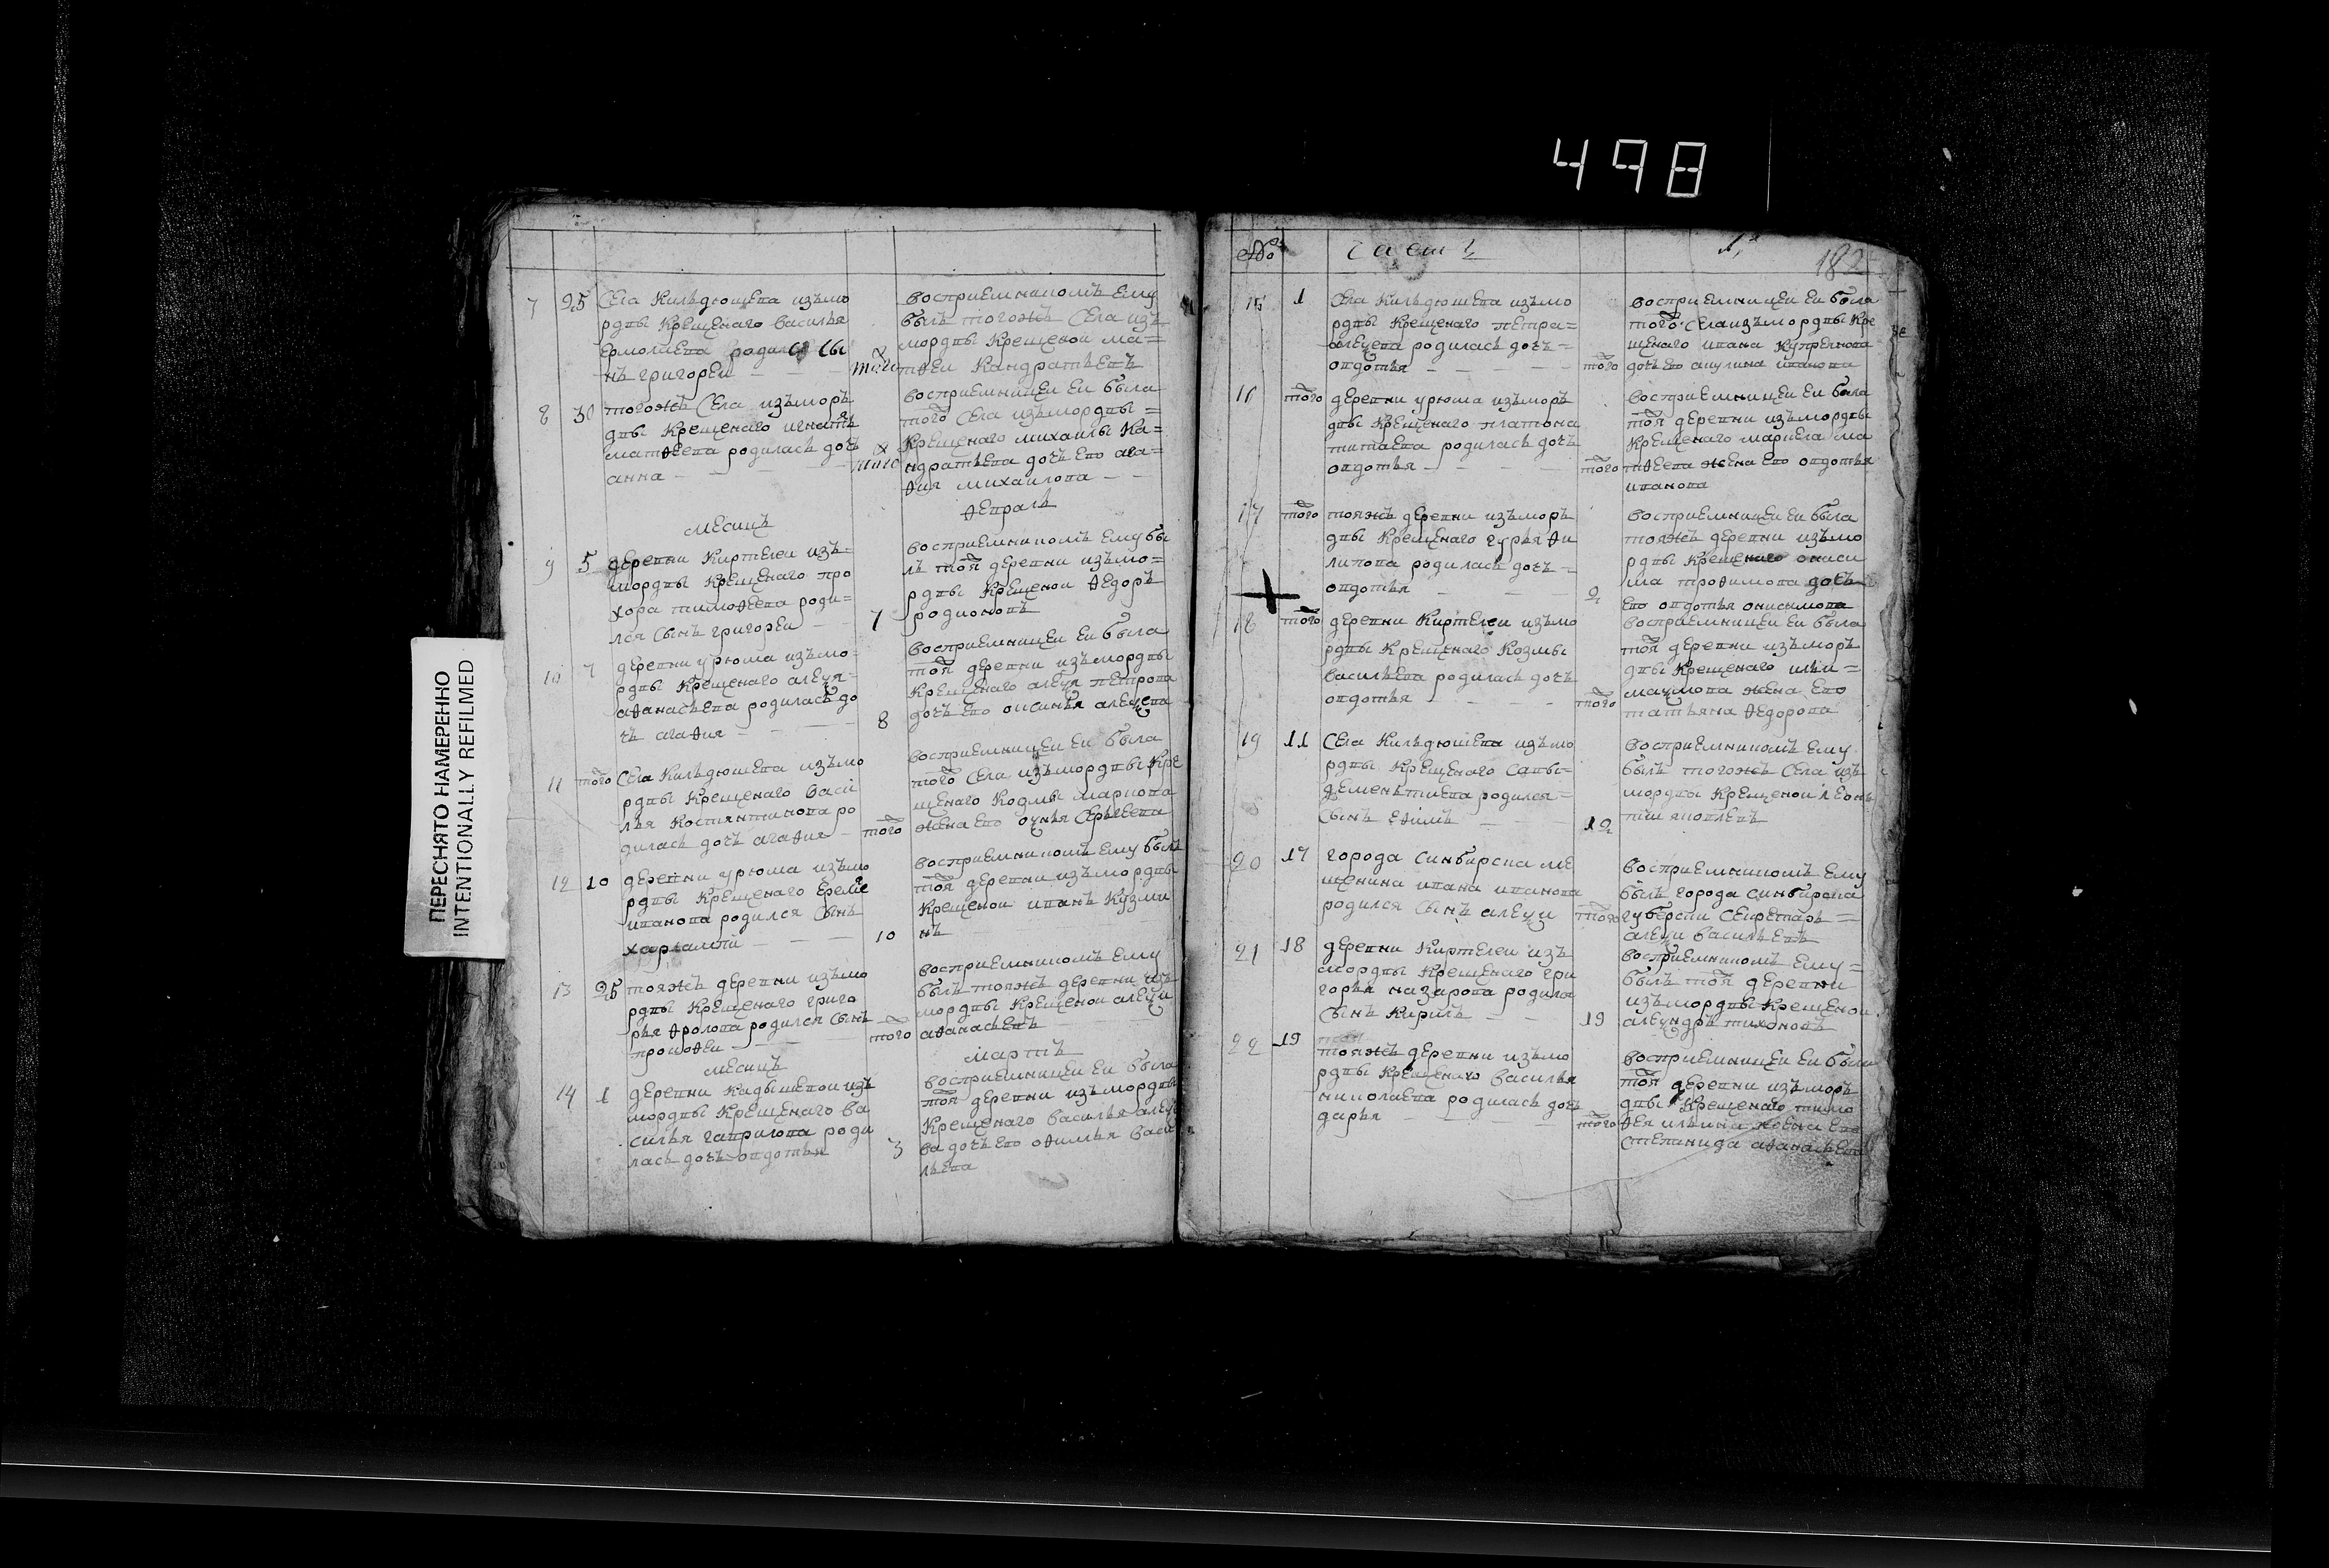 498
ПЕРЕСНЯТО НАМЕРЕННО
INTENTIONALLY REFILMED
7 25 Села Кильдюшева изъ мо
рдвы Крещенаго Василья
Ермолаева родился сы
нъ григореи
того
восприемникомъ Ему
былъ тогожъ Села изъ
мордвы Крещенои ма=
тѳеи Кандратьевъ
8 30 тогожъ Села изъ моръ
двы Крещенаго игнатья
матѳеева родилась дочь
анна
того
восприемницеи Еи была
того Села изъ мордвы=
Крещенаго михаилы Ка=
ндратьева дочь Ево ага=
ѳия михаилова
месяцъ ѳевраль
9 5 деревни Киртелеи изъ=
мордвы Крещенаго про
хора тимоѳеева роди=
лся Сынъ григореи
7
восприемникомъ Ему бы
лъ тоя деревни изъ мо=
рдвы Крещенои ѳедоръ
родионовъ
10 7 деревни урюма изъ мо=
рдвы Крещенаго алеѯя=
аѳанасьева родилась до
чь агаѳия
8
восприемницеи Еи была
тоя деревни изъ мордвы
Крещенаго алеѯя петрова
дочь Ево оксинья алеѯева
11 того Села Кильдюшева изъ мо
рдвы Крещенаго васи
лья Костянтинова ро
дилась дочь агаѳия
того
восприемницеи Еи была
того Села изъ мордвы Кре
щенаго Козмы маркова
жена Ево Сергеева
12 10 деревни урюма изъ мо
рдвы Крещенаго Ереме
иванова родился Сынъ
харлампи
10
восприемникомъ Ему былъ
тоя деревни изъ мордвы
Крещенои иванъ Кузми
нъ
13 25 тояжъ деревни изъ мо
рдвы Крещенаго григо
рья ѳролова родился Сынъ
прокоѳеи
того
восприемникомъ Ему
былъ тояжъ деревни изъ
мордвы Крещенои алеѯи
аѳанасьевъ
месяцъ мартъ
14 1 деревни Кадышевои изъ
мордвы Крещенаго Ва
силья гаврилова роди
лась дочь овдотья
3
восприемницеи Еи была
тоя деревни изъ мордвы
Крещенаго Василья алеѯе
ва дочь Ево оѳимья Васи
льева
№ Часть 1я 182
15 1 Села Кильдюшева изъ мо
рдвы Крещенаго петра=
алеѯева родилась дочь=
овдотья
того
восприемницеи Еи была
того Села изъ мордвы Кре
щенаго ивана Купреянова
дочь Ево акулина иванова
16 того деревни урюма изъ моръ
двы Крещенаго платона
титаева родилась дочь
овдотья
того
восприемницеи Еи была
тоя деревни изъ мордвы
Крещенаго маркела ма
тѳеева жена Ево овдотья
иванова
17 того тояжъ деревни изъ моръ
двы Крещенаго гурья ѳи
липова родилась дочь=
овдотья
2
восприемницеи Еи была
тояжъ деревни изъ мо
рдвы Крещенаго ониси
ма троѳимова дочь
Ево овдотья онисимова
18 того деревни Киртелеи изъ мо
рдвы Крещенаго Козмы
васильева родилась дочь
овдотья
того
восприемницеи Еи была
тоя деревни изъ моръ
двы Крещенаго ильи=
жена Ево
татьяна ѳедорова
19 11 Села Кильдюшева изъ мо
рдвы Крещенаго Савы=
дементиева родился=
Сынъ Еѳимъ
12
восприемникомъ Ему
былъ тогожъ Села изъ
мордвы Крещенои леонъ
тии яковлевъ
20 17 города Синбирска ме
щенина ивана иванова
родился Сынъ алеѯи
того
восприемникомъ Ему
былъ города синбирска
губерски Секретарь=
алеѯи васильевъ
21 18 деревни Киртелеи изъ
мордвы Крещенаго гри
горья назарова родился
Сынъ Кирилъ
19
восприемникомъ Ему=
былъ тоя деревни
изъ мордвы Крещенои
алеѯндръ тихоновъ
22 19 тояжъ деревни изъ мо
рдвы Крещенаго василья
николаева родилась дочь
дарья
того
восприемницеи Еи была
тоя деревни изъ моръ
двы Крещенаго тимо
ѳея ильина жена Ево
степанида аѳанасьева